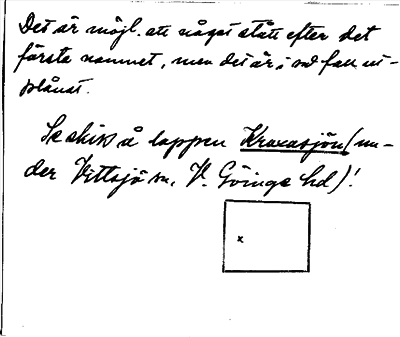 Det är möjl. att något stått efter det
första namnet, men det är i så fall ut-
plånat.
Se skiss å lappen Kraxasjön (un-
der Vittsjö sn, V. Göinge hd)!
x